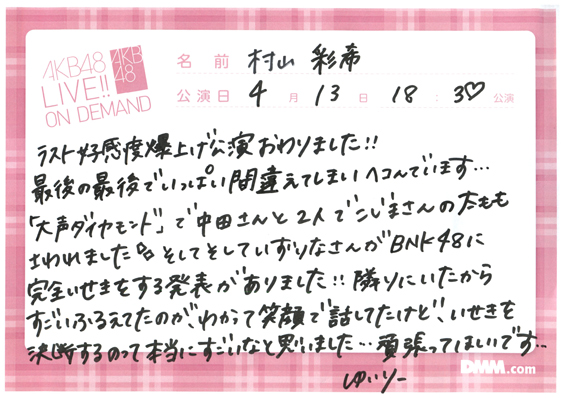 AKB48
LIVE!!
ON DEMAND
AKB
48
名前 村山 彩希
公演日 4月13日 18:30公演
ラスト好感度爆上げ公演おわりました!!
最後の最後でいっぱい間違えてしまいヘコんでいます…
「大声ダイヤモンド」で中田さんと2人でこじまさんの太もも
さわれました そしてそしていずりなさんがBNK48に
完全いせきをする発表がありました!! 隣りにいたから
すごいふるえてたのが、わかって笑顔で話してたけど、いせきを
決断するのって本当にすごいなと思いました… 頑張ってほしいです…
ゆいりー
DMM.com